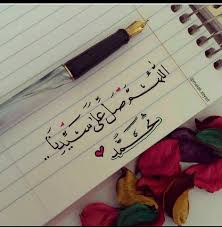 اللهم صل على سيدنا..
محمد